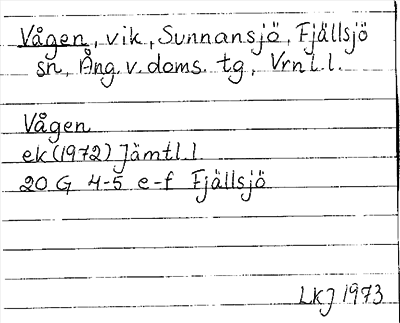 Vågen, vik, Sunnansjö, Fjällsjö
sn, Ång. v. doms. tg, Vrnl. l.
Vågen
ek (1972) Jämtl. l
20 G 4-5 e-f Fjällsjö
LKJ 1973